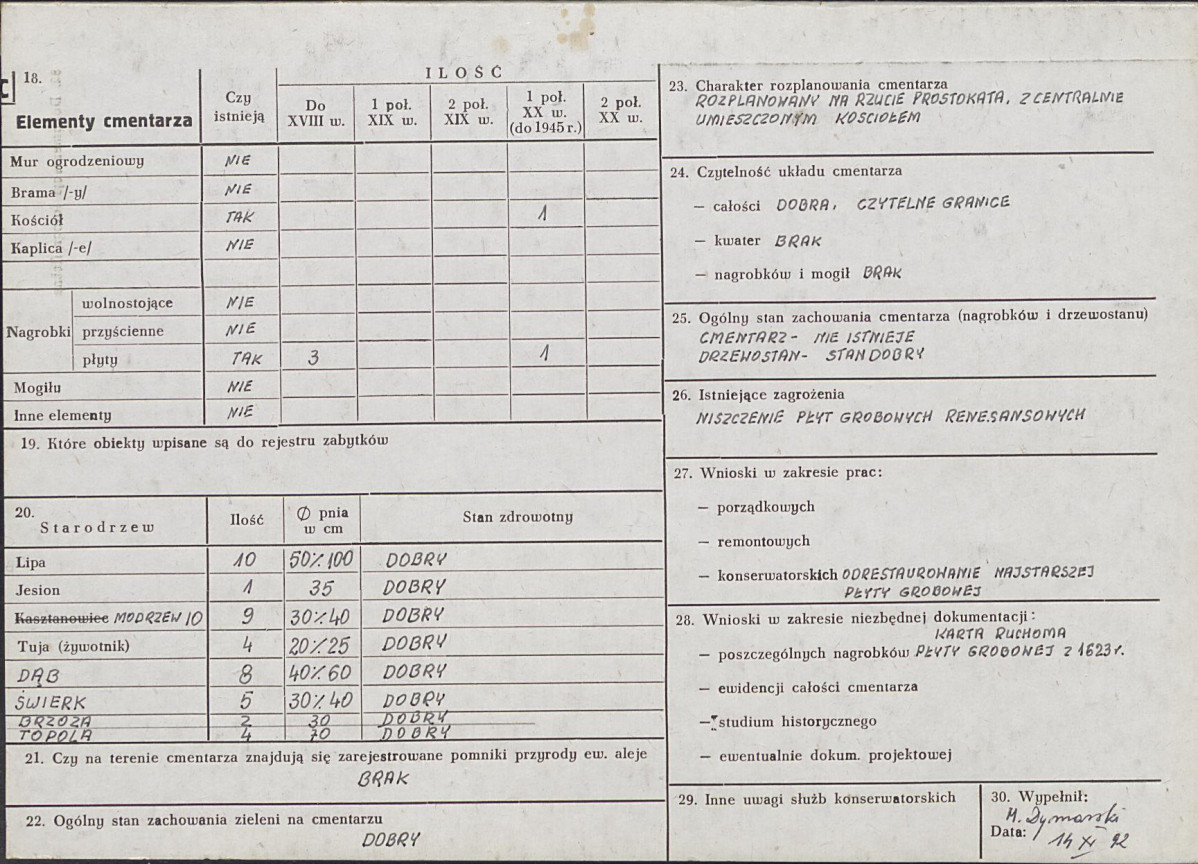 18.
Elementy cmentarza
Czy istnieją
ILOŚĆ
Do XVIII w.
1 poł. XIX w.
2 poł. XIX w.
1 poł. XX w. (do 1945 r.)
2 poł. XX w.
Mur ogrodzeniowy NIE
Brama /-y/ NIE
Kościół TAK 1
Kaplica /-e/ NIE
Nagrobki
wolnostojące NIE
przyścienne NIE
płyty TAK 3 1
Mogiły NIE
Inne elementy NIE
19. Które obiekty wpisane są do rejestru zabytków
20.
Starodrzew
Ilość
Ø pnia w cm
Stan zdrowotny
Lipa 10 50÷100 DOBRY
Jesion 1 35 DOBRY
Kasztanowiec MODRZEW 9 30÷40 DOBRY
Tuja (żywotnik) 4 20÷25 DOBRY
DĄB 8 40÷60 DOBRY
ŚWIERK 5 30÷40 DOBRY
BRZOZA 2 30 DOBRY
TOPOLA 4 70 DOBRY
21. Czy na terenie cmentarza znajdują się zarejestrowane pomniki przyrody ew. aleje
BRAK
22. Ogólny stan zachowania zieleni na cmentarzu
DOBRY
23. Charakter rozplanowania cmentarza
ROZPLANOWANY NA RZUCIE PROSTOKĄTA, Z CENTRALNIE
UMIESZCZONYM KOŚCIOŁEM
24. Czytelność układu cmentarza
— całości DOBRA, CZYTELNE GRANICE
— kwater BRAK
— nagrobków i mogił BRAK
25. Ogólny stan zachowania cmentarza (nagrobków i drzewostanu)
CMENTARZ - NIE ISTNIEJE
DRZEWOSTAN - STAN DOBRY
26. Istniejące zagrożenia
NISZCZENIE PŁYT GROBOWYCH RENESANSOWYCH
27. Wnioski w zakresie prac:
— porządkowych
— remontowych
— konserwatorskich ODRESTAUROWANIE NAJSTARSZEJ
PŁYTY GROBOWEJ
28. Wnioski w zakresie niezbędnej dokumentacji:
KARTA RUCHOMA
— poszczególnych nagrobków PŁYTY GROBOWEJ Z 1623 r.
— ewidencji całości cmentarza
— studium historycznego
— ewentualnie dokum. projektowej
29. Inne uwagi służb konserwatorskich
30. Wypełnił:
M. Dymarski
Data: 14 XI 92